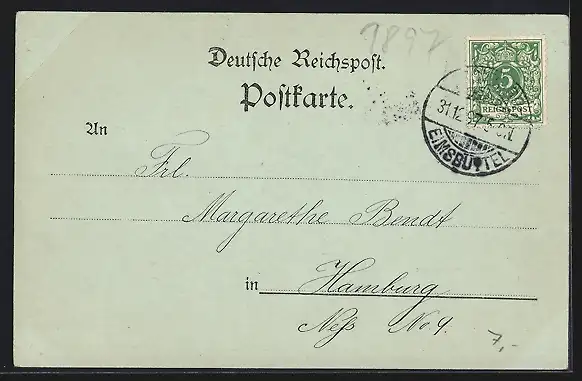 1897
Deutsche Reichspost.
Postkarte.
5
REICHSPOST
31.12.97
EIMSBÜTTEL
An
Frl.
Margarethe Bendt
in Hamburg
Neß No 4.
7,-